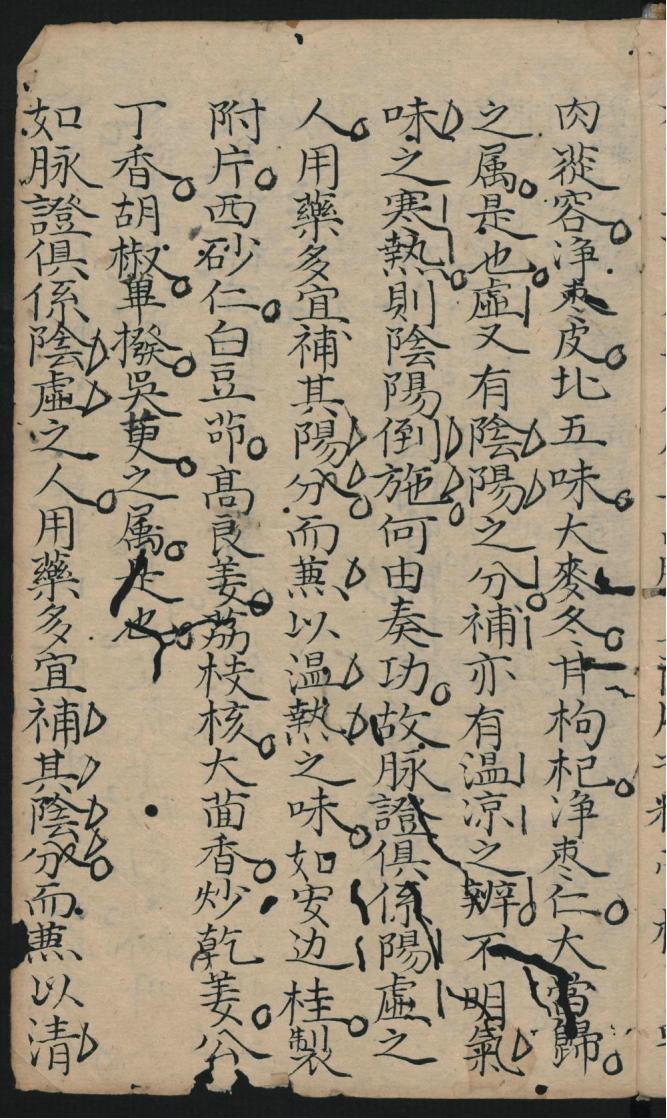 肉蓯容淨枣皮北五味大麥冬甘枸杞淨枣仁大當歸
之属是也虛又有陰陽之分補亦有温凉之辨不明氣
味之寒熱則陰陽倒施何由奏功故脉證俱係陽虛之
人用藥多宜補其陽分而兼以温熱之味如安边桂製
附片西砂仁白豆茆高良姜荔枝核大茴香炒乾姜公
丁香胡椒蓽撥吳萸之属是也
如脉證俱係陰虛之人用藥多宜補其陰分而兼以清